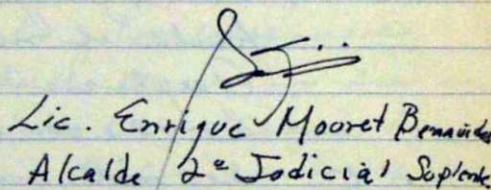 Lic. Enrique Mouret Benavides
Alcalde 2º Judicial Suplente